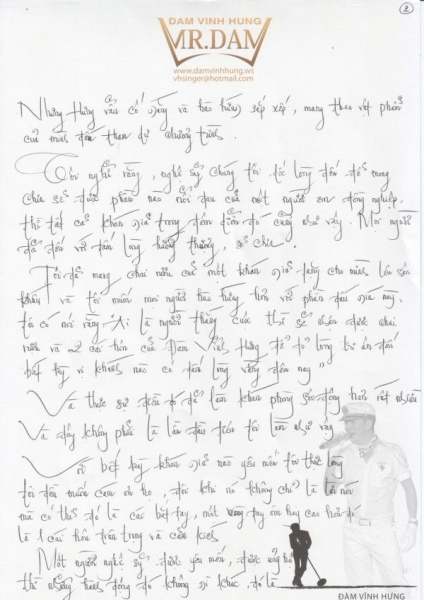 2
ĐÀM VĨNH HƯNG
MR.DAM
www.damvinhhung.ws
vhsinger@hotmail.com
Nhưng Hưng vẫn cố gắng và hân hữu sắp xếp, mang theo vật phẩm
của mình đến tham dự chương trình.
Tôi nghĩ rằng, nghệ sỹ chúng tôi, tốt lòng đến để mong
chia sẻ được phần nào nỗi đau của một người em đồng nghiệp,
thì tất cả khán giả trong đêm đó cũng như vậy. Mọi người
đã đến với tấm lòng hướng thương, sẻ chia.
Tôi đã mang chai nước của một khán giả tặng cho mình lên sân
khấu và tôi muốn mọi người hào hứng hơn với phần đấu giá này,
tôi có nói rằng "Ai là người thắng cuộc thì sẽ nhận được chai
nước và 2 cái hôn của Đàm Vĩnh Hưng để tỏ lòng tri ân đến
bất kỳ vị khách nào có tấm lòng vàng đêm nay"
Và thực sự điều đó đã làm khán phòng sôi động hơn rất nhiều
Và đây không phải là lần đầu tiên tôi làm như vậy
Với bất kỳ khán giả nào yêu mến tôi thật lòng
tôi đều muốn cảm ơn họ, đôi khi nó không chỉ là lời nói
mà có thể đó là cái bắt tay, một vòng tay ôm hay cao hơn đó
là 1 cái hôn trân trọng và cảm kích
Một người nghệ sỹ được yêu mến, được ủng hộ
thì những hành động đó không gì khác, đó là
ĐÀM VĨNH HƯNG